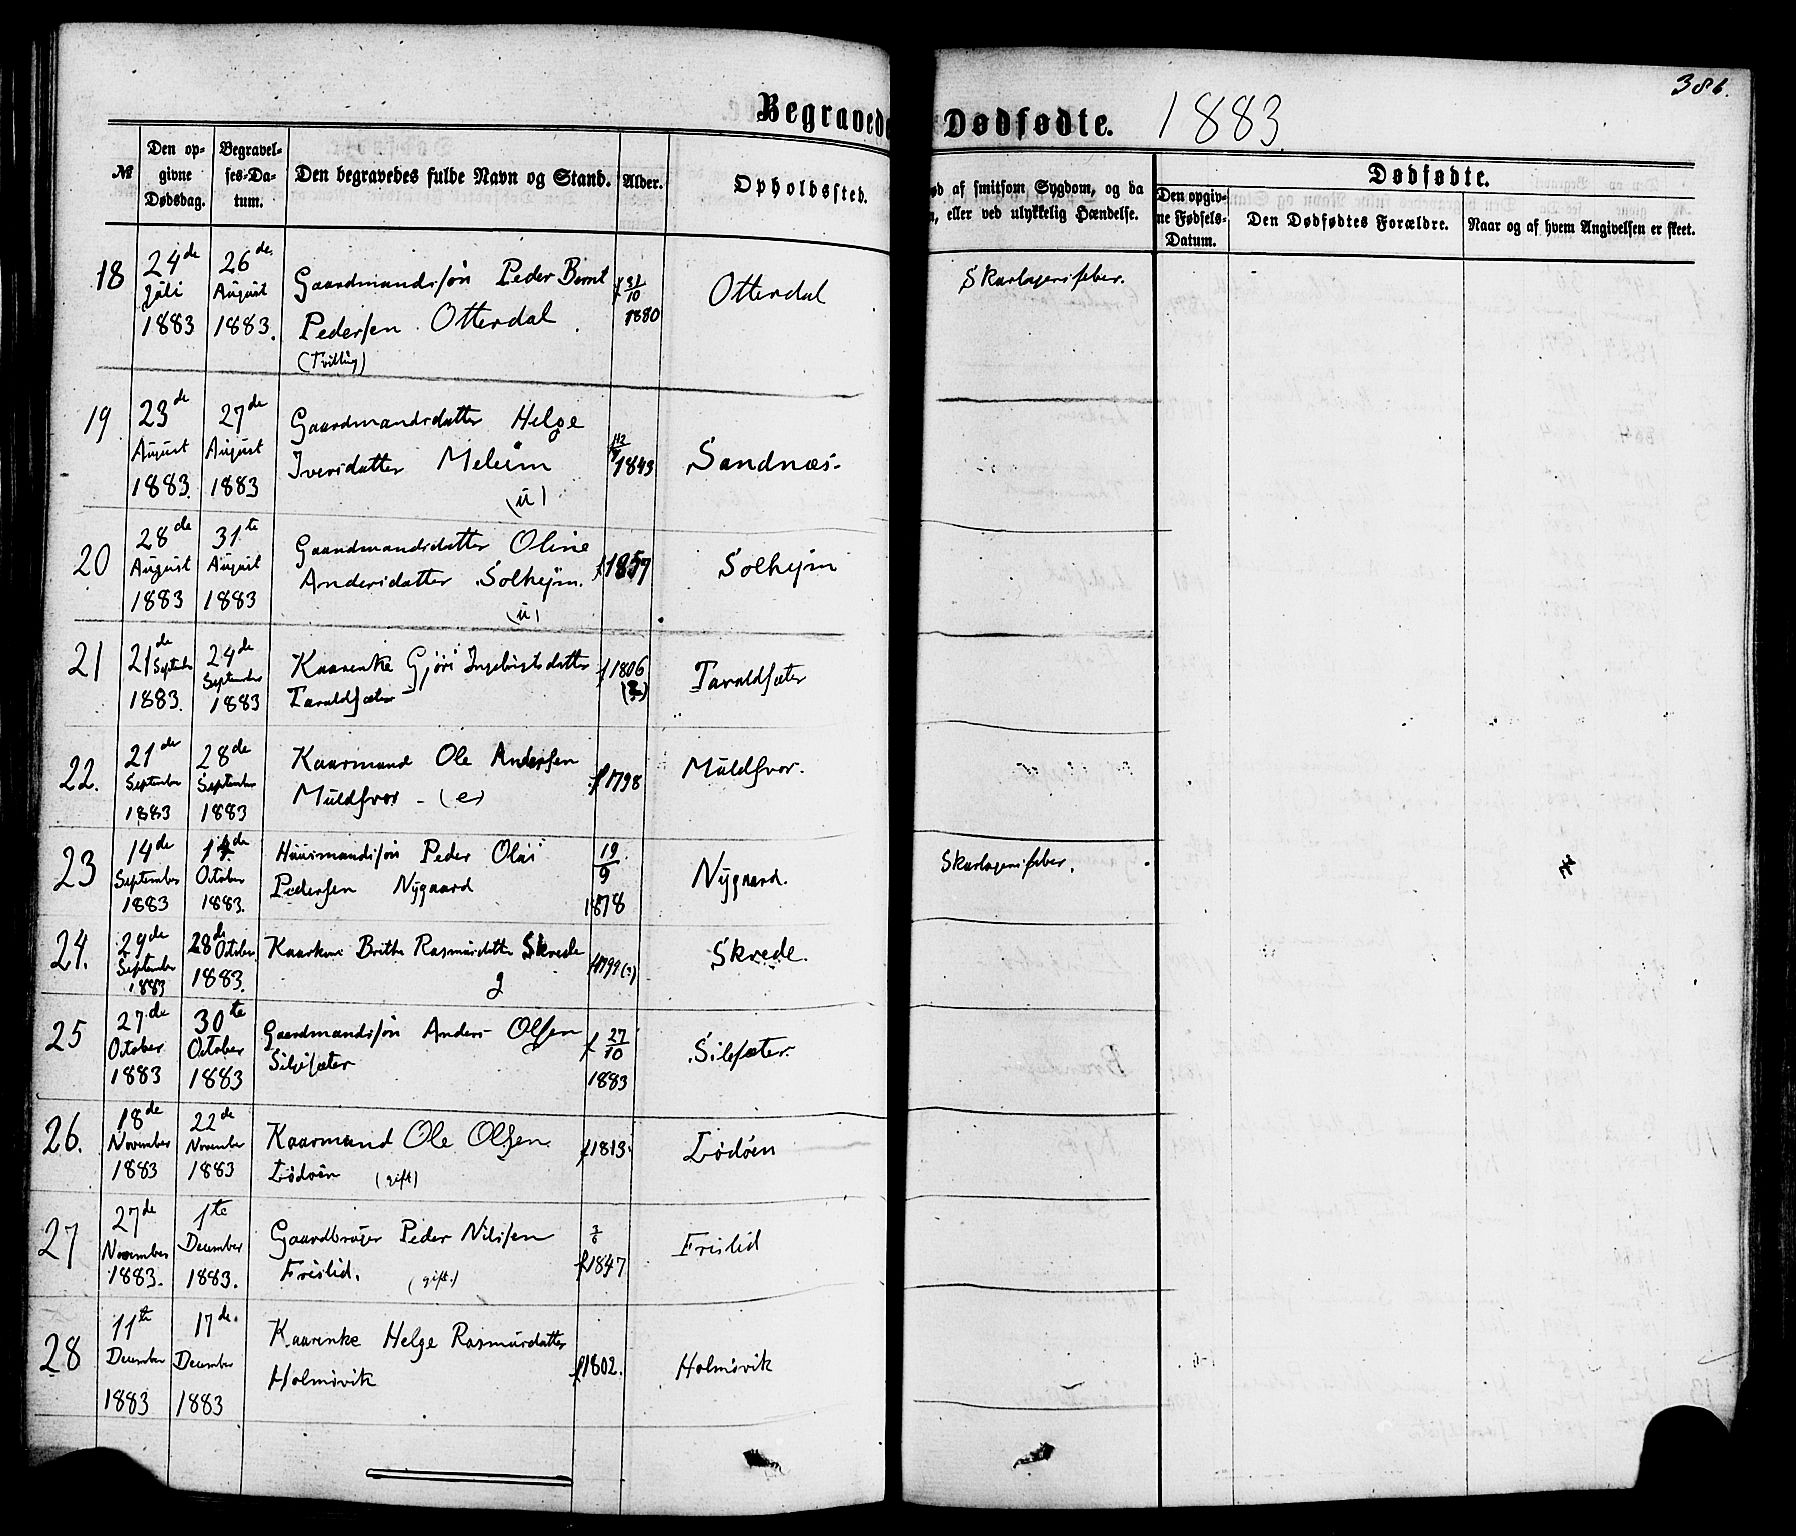 386.
Begravede
Dødfødte. 1883
№
Den opgivne Dødsdag.
Begravelses-Datum.
Den begravedes fulde Navn og Stand.
Alder.
Opholdssted.
af smitsom Sygdom, og da
eller ved ulykkelig Hændelse.
Dødfødte.
Den opgivne Fødsels-Datum.
Den Dødfødtes Forældre.
Naar og af hvem Angivelsen er skeet.
18 24de Juli 1883 26de August 1883. Gaardmandssøn Peder Bernt
Pedersen Otterdal
(Tvilling)
10 1880 Otterdal Skarlagensfeber.
19 23de August 1883. 27de August 1883 Gaardmandsdatter Helge
Iversdatter Meleim
(u)
1843 Sandnæs.
20 28de August 1883 31te August 1883 Gaardmandsdatter Oline
Andersdatter Solhejm.
(u)
f 1857 Solhejm
21 21de September 1883. 24de September 1883 Kaarenke Gjøri Ingebrigtsdatter
Taraldsæter
f 1806 Taraldsæter
22. 21de September 1883 28de September 1883 Kaarmand Ole Andersen
Muldsvor - (e)
f 1798 Muldsvor.
23 14de September 1883 October 1883. Huusmandssøn Peder Olai
Pedersen Nygaard
19/9 1878 Nygaard. Skarlagensfeber.
24. 29de September 1883 28de October 1883. Brithe Rasmusdatter Skrede
f 1799 (?) Skrede.
25 27de October 1883 30te October 1883 Gaardmandssøn Anders Olsen
Silsæter
f 27/10 1883 Silsæter.
26. 18de November 1883 22de November 1883 Kaarmand Ole Olsen
Lødøen (gift)
f 1813. Lødøen
27 27de November 1883. 1te December 1883. Gaardbruger Peder Nilssen
Frislid. (gift.)
f 1847 Frislid
28 11te December 1883 17de. December 1883 Kaarenke Helge Rasmusdatter
Holmsvik
f 1802. Holmsvik